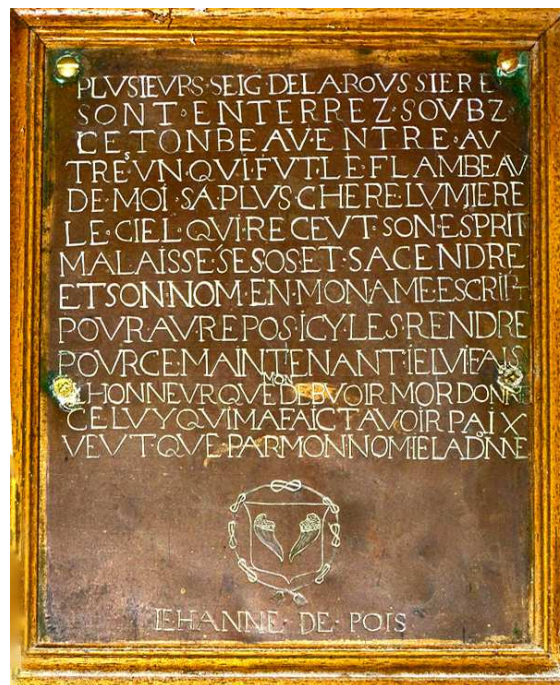 PLVSIEVRS·SEIG DE LAROVSSIERE
SONT·ENTERREZ·SOVBZ
CETONBEAV·ENTRE·AV
TRES·VN·QVI·FVT·LE·FLAMBEAV
DE·MOI·SA·PLVS·CHERE LVMIERE
LE·CIEL·QVI·RECEVT·SON·ESPRIT
MALAISSE·SES·OS·ET·SA CENDRE
ET SON NOM·EN·MON AME ESCRIT
POVR·AV REPOS·ICY·LES·RENDRE
POVR CE MAINTENANT·IE LVI FAIS
LHONNEVR QVE MON DEBVOIR MORDONNE
CELVY QVI MA FAICT AVOIR PAIX
VEVT QVE·PAR MON NOM IE LA DONNE
IEHANNE·DE·POIS